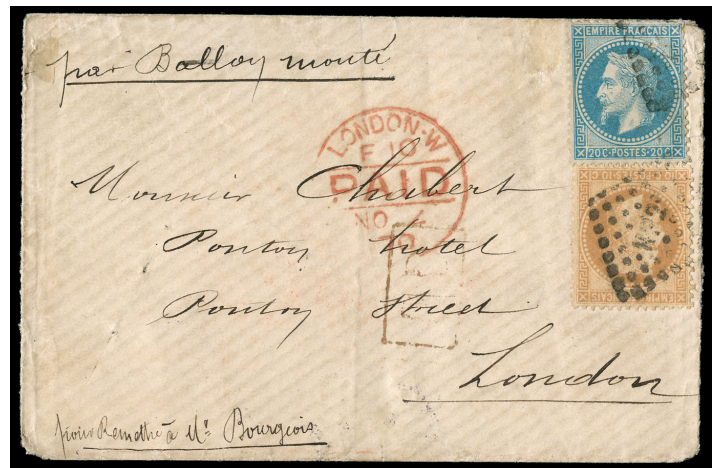 par Ballon monté
EMPIRE FRANÇAIS
20C·POSTES·20C
LONDON·W
F 10
PAID
NO 4
70
Monsieur Chabert
Ponton hotel
Ponton Street
London
10C·POSTES·10C
EMPIRE FRANÇAIS
pour Remettre à Mr Bourgeois